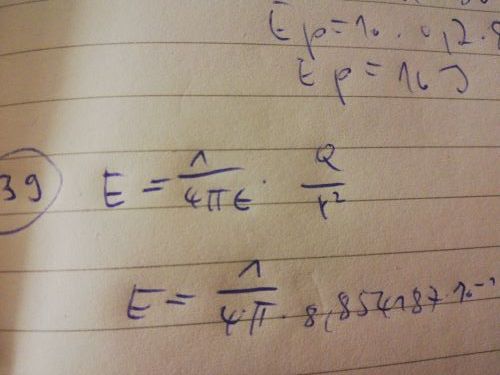 Ep = 10 . 0,2 . 8
Ep = 16 J
39 E = 1/4πε . Q/r²
E = 1/4.π . 8,854187.10⁻